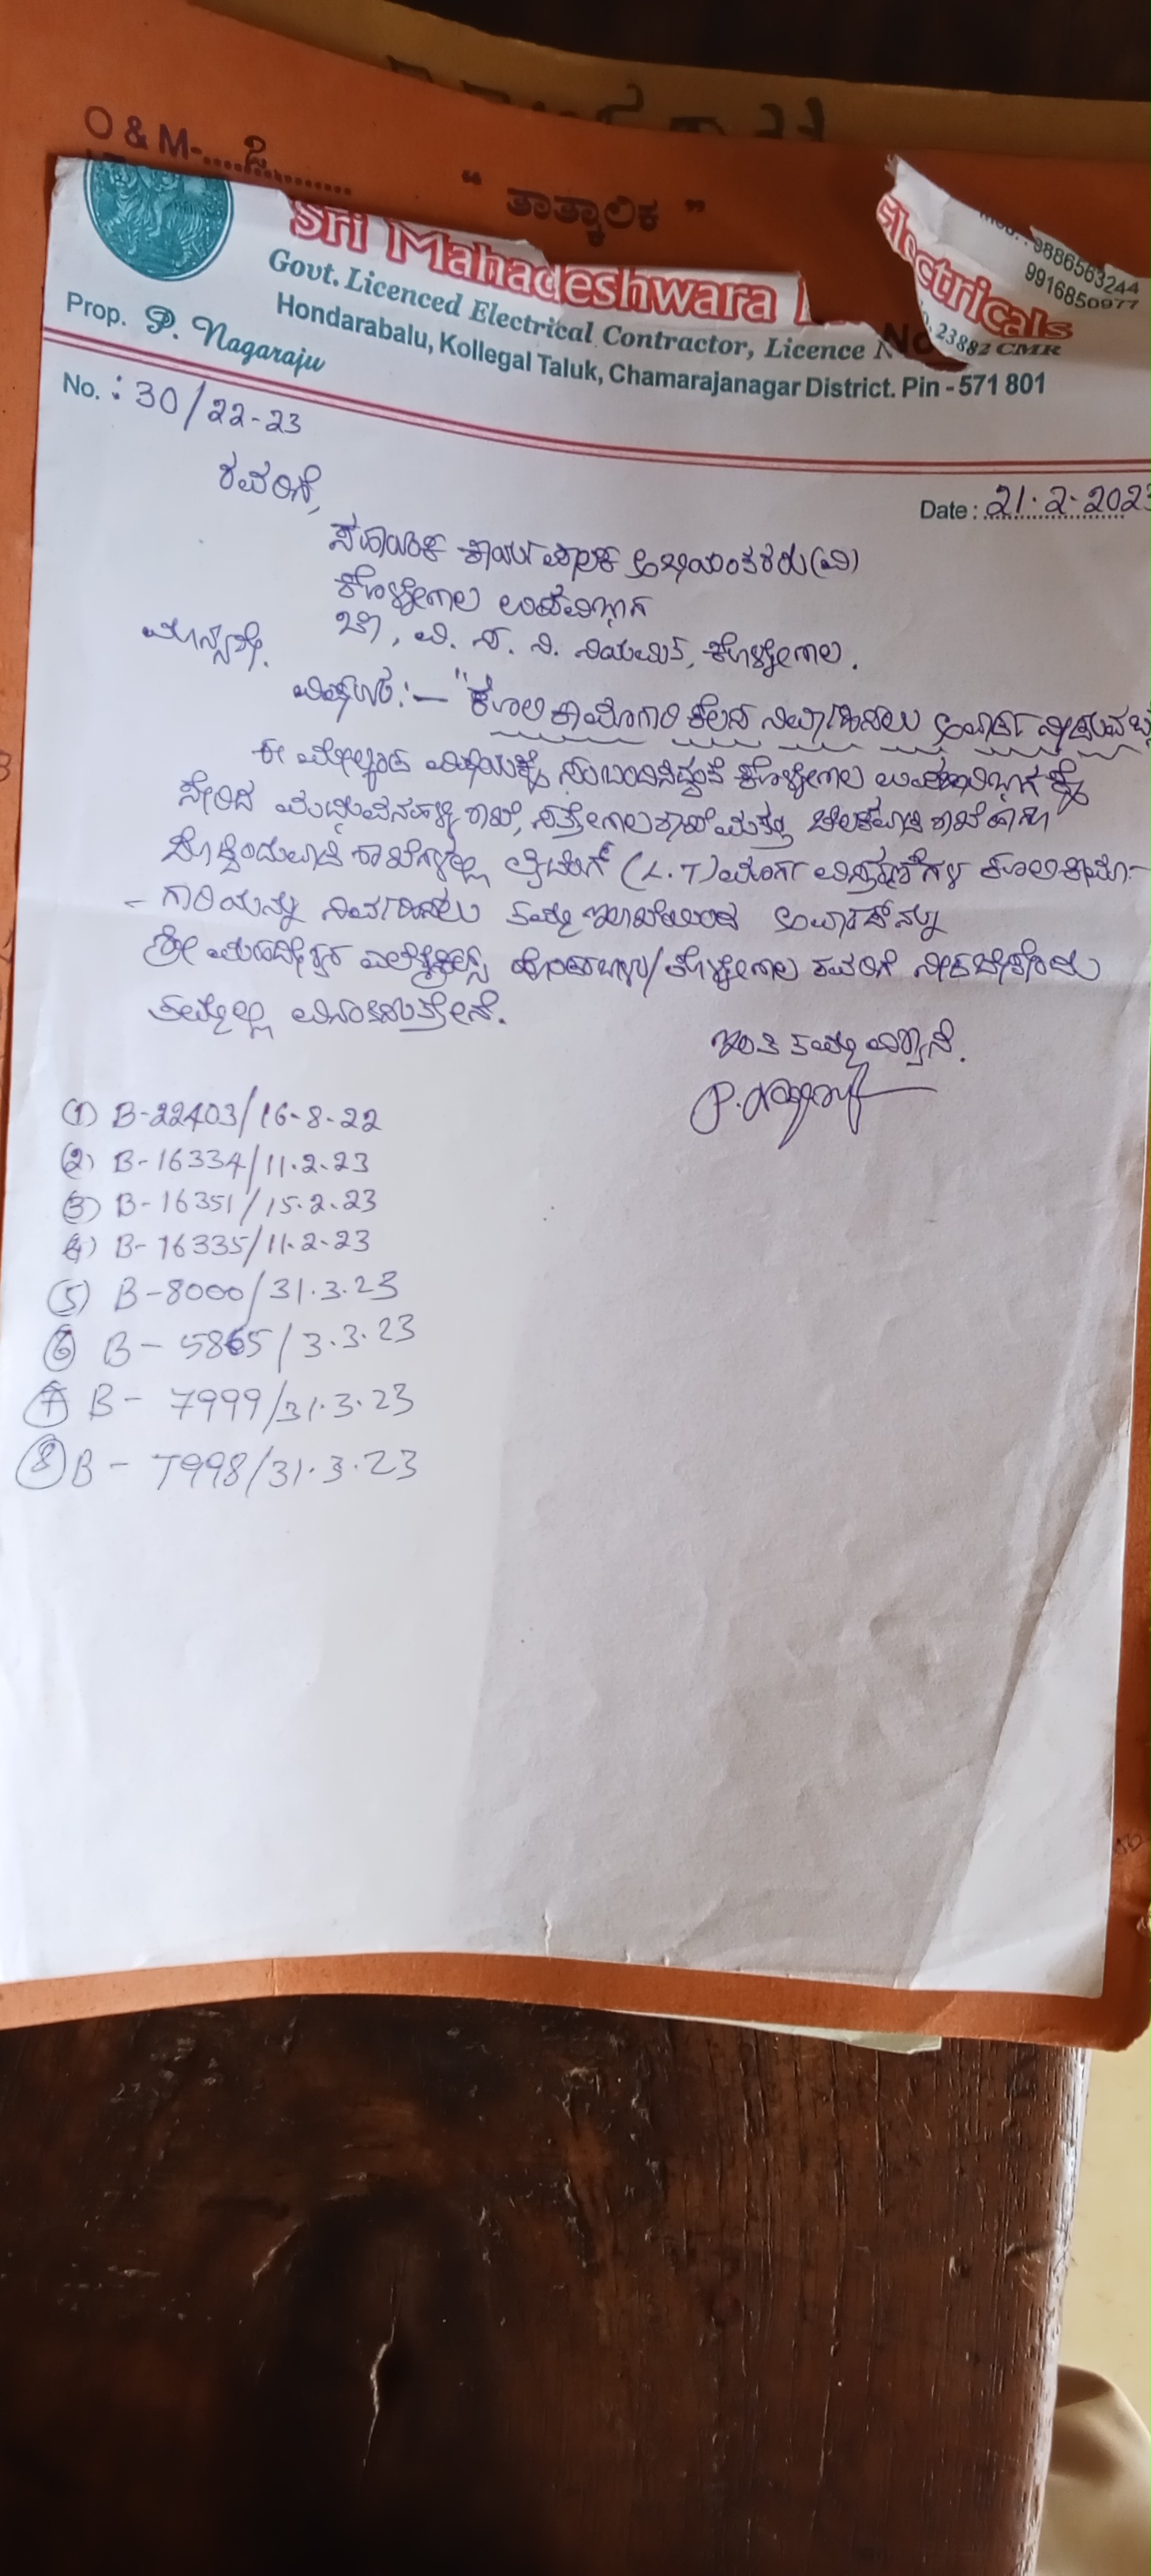 O & M-....ಸಿ.........
“ ತಾತ್ಕಾಲಿಕ ”
Sri Mahadeshwara Electricals
Mob.: 9886563244
9916850977
Govt. Licenced Electrical Contractor, Licence No. 23882 CMR
Hondarabalu, Kollegal Taluk, Chamarajanagar District. Pin - 571 801
Prop. P. Nagaraju
No. : 30/22-23
Date : 21.2.2023
ರವರಿಗೆ,
ಸಹಾಯಕ ಕಾರ್ಯಪಾಲಕ ಅಭಿಯಂತರರು(ವಿ)
ಕೊಳ್ಳೇಗಾಲ ಉಪವಿಭಾಗ
ಚಾ, ವಿ. ಸ. ನಿ. ನಿಯಮಿತ, ಕೊಳ್ಳೇಗಾಲ.
ಮಾನ್ಯರೇ.
ವಿಷಯ:- "ಕೂಲಿ ಕಾಮಗಾರಿ ಕೆಲಸ ನಿರ್ವಹಿಸಲು ಅವಾರ್ಡ್ ನೀಡುವ
ಈ ಮೇಲ್ಕಂಡ ವಿಷಯಕ್ಕೆ ಸಂಬಂದಿಸಿದ್ದಂತೆ ಕೊಳ್ಳೇಗಾಲ ಉಪವಿಭಾಗಕ್ಕೆ
ಸೇರಿದ ಶಾಖೆ, ಸತ್ತೇಗಾಲ ಶಾಖೆ ಮತ್ತು ಶಾಖೆ ಹಾಗೂ
ಶಾಖೆಗಳಲ್ಲಿ (L.T) ಮಾರ್ಗ ವಿಸ್ತರಣೆಗಳ ಕೂಲಿ ಕಾಮ-
- ಗಾರಿಯನ್ನು ನಿರ್ವಹಿಸಲು ತಮ್ಮ ಇಲಾಖೆಯಿಂದ ಅವಾರ್ಡ್‌ನ್ನು
ಶ್ರೀ ಮಹದೇಶ್ವರ ಎಲೆಕ್ಟ್ರಿಕಲ್ಸ್ ಹೊಂಡರಬಾಳು/ಕೊಳ್ಳೇಗಾಲ ರವರಿಗೆ ನೀಡಬೇಕೆಂದು
ತಮ್ಮಲ್ಲಿ ವಿನಂತಿಸುತ್ತೇನೆ.
ಇಂತಿ ತಮ್ಮ ವಿಶ್ವಾಸಿ.
① B-22403/16-8-22
② B-16334/11.2.23
③ B-16351/15.2.23
④ B-16335/11.2.23
⑤ B-8000/31.3.23
⑥ B-5865/3.3.23
⑦ B-7999/31.3.23
⑧ B-7998/31.3.23